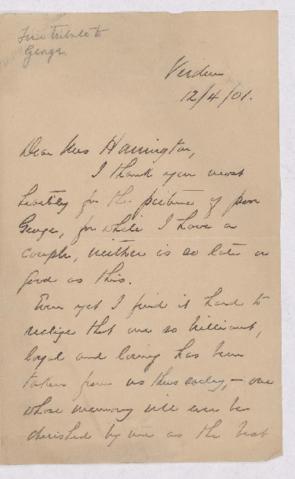 Fine tribute to
George
Verdun
12/4/01.
Dear Mrs Harrington,
I thank you most
heartily for the picture of poor
George, for while I have a
couple, neither is so late or
good as this.
Even yet I find it hard to
realize that one so brilliant,
loyal and loving has been
taken from us thus early, – one
whose memory will ever be
cherished by me as the best